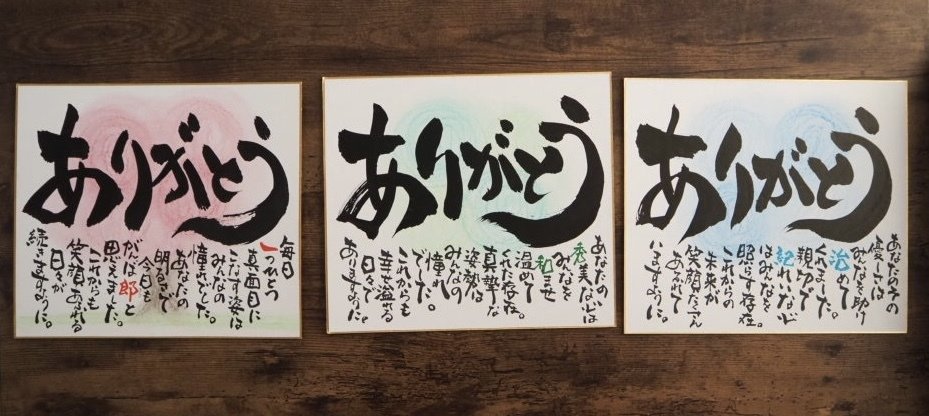 ありがとう
毎日
一つひとつ
真面目に
こなす姿は
みんなの
憧れでした。
あなたの
明るさで
今日も
がんば郎と
思えました。
これからも
笑顔あふれる
日々が
続きますように。
ありがとう
あなたの
秀美な心は
みんなを
和ませ
温めて
くれる存在。
真摯な
姿勢は
みんなの
憧れ
でした。
これからも
幸せ溢れる
日々で
ありますように。
ありがとう
あなたのその
優しさには
みんなを助け
治めて
くれました。
親切で
記れいな心
はみんなを
照らす存在。
これからの
未来が
笑顔たくさん
あふれて
いますように。